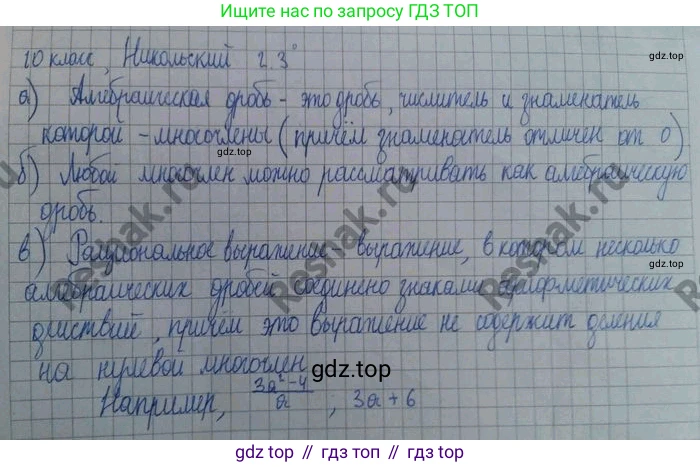 Ищите нас по запросу ГДЗ ТОП
10 класс, Никольский 2.3°
а) Алгебраическая дробь - это дробь, числитель и знаменатель
которой - многочлены (причём знаменатель отличен от 0)
б) Любой многочлен можно рассматривать как алгебраическую
дробь.
в) Рациональное выражение - выражение, в котором несколько
алгебраических дробей соединено знаками арифметических
действий, причём это выражение не содержит деления
на нулевой многочлен
Например, (3a²-4)/a, 3a+6
gdz.top
gdz.top
gdz.top
gdz.top
gdz.top
Reshak.ru
Reshak.ru
Reshak.ru
gdz.top // gdz.top // gdz.top